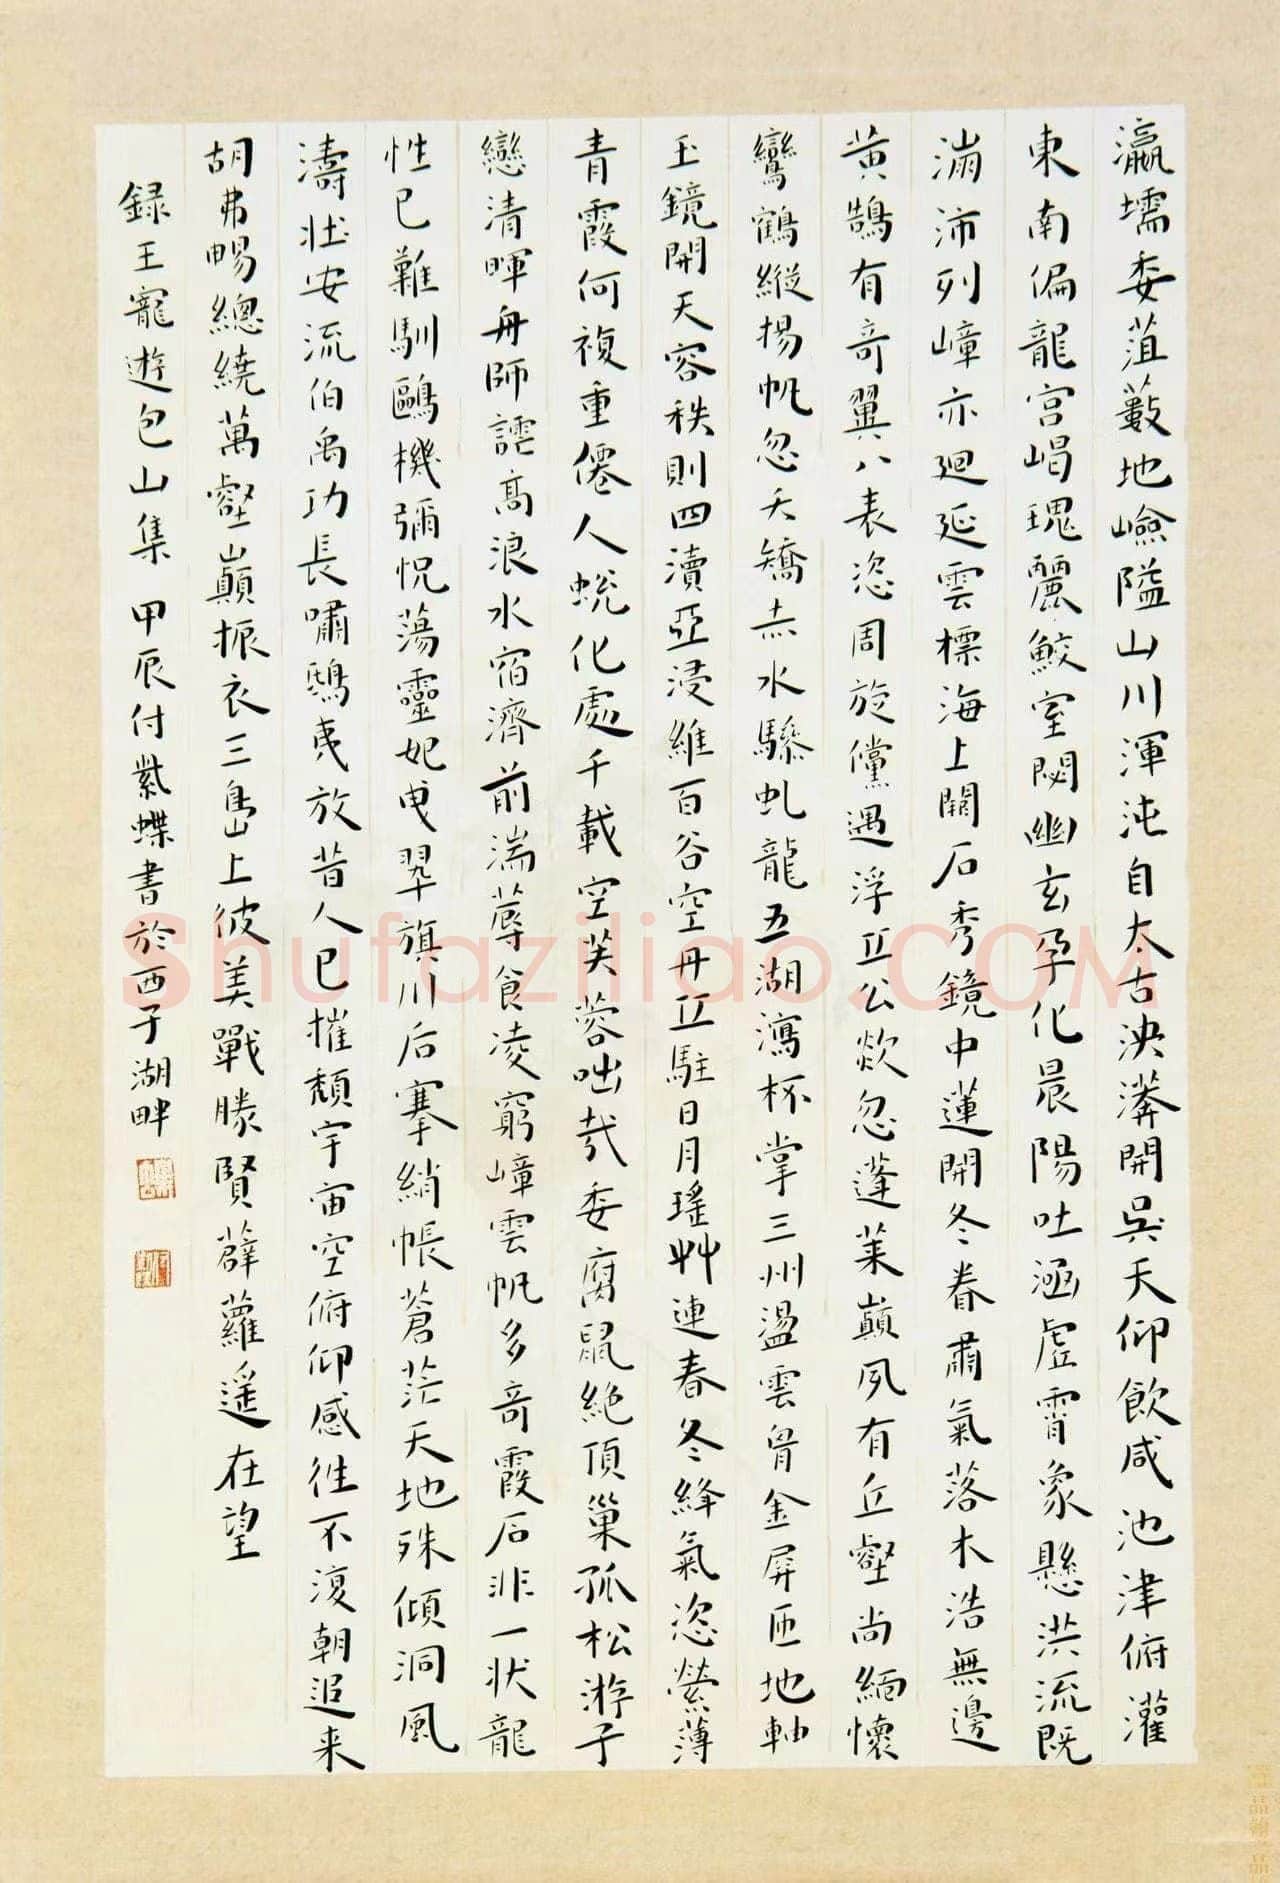 瀛壖委菹藪地嶮隘山川渾沌自太古泱漭開吳天仰飲咸池津俯灌
東南偏龍宮嵑瑰麗鮫室閟幽玄孕化晨陽吐涵虛霄象懸洪流既
滿沛列嶂亦迴延雲標海上闢石秀鏡中蓮開冬春肅氣落木浩無邊
黃鵠有奇翼八表恣周旋儻遇浮丘公歘忽蓬萊巔夙有丘壑尚緬懷
鸞鶴縱揚帆忽夭矯赤水驂虬龍五湖瀉杯掌三州盪雲骨金屏匝地軸
玉鏡開天容秩則四瀆亞浸維百谷空丹丘駐日月瑤艸連春冬絳氣恣縈薄
青霞何複重僊人蛻化處千載空芙蓉咄哉委腐鼠絶頂巢孤松游子
戀清暉舟師謔高浪水宿濟前湍蓐食凌窮嶂雲帆多奇霞石非一狀龍
性已難馴鷗機彌怳蕩靈妃曳翠旗川后搴綃帳蒼茫天地殊傾洞風
濤壯安流伯禹功長嘯鴟夷放昔人已摧頹宇宙空俯仰感往不復朝追来
胡弗暢總繞萬壑巔振衣三島上彼美戰勝賢薜蘿遥在望
録王寵遊包山集 甲辰付紫蝶書於西子湖畔
shufaziliao.COM